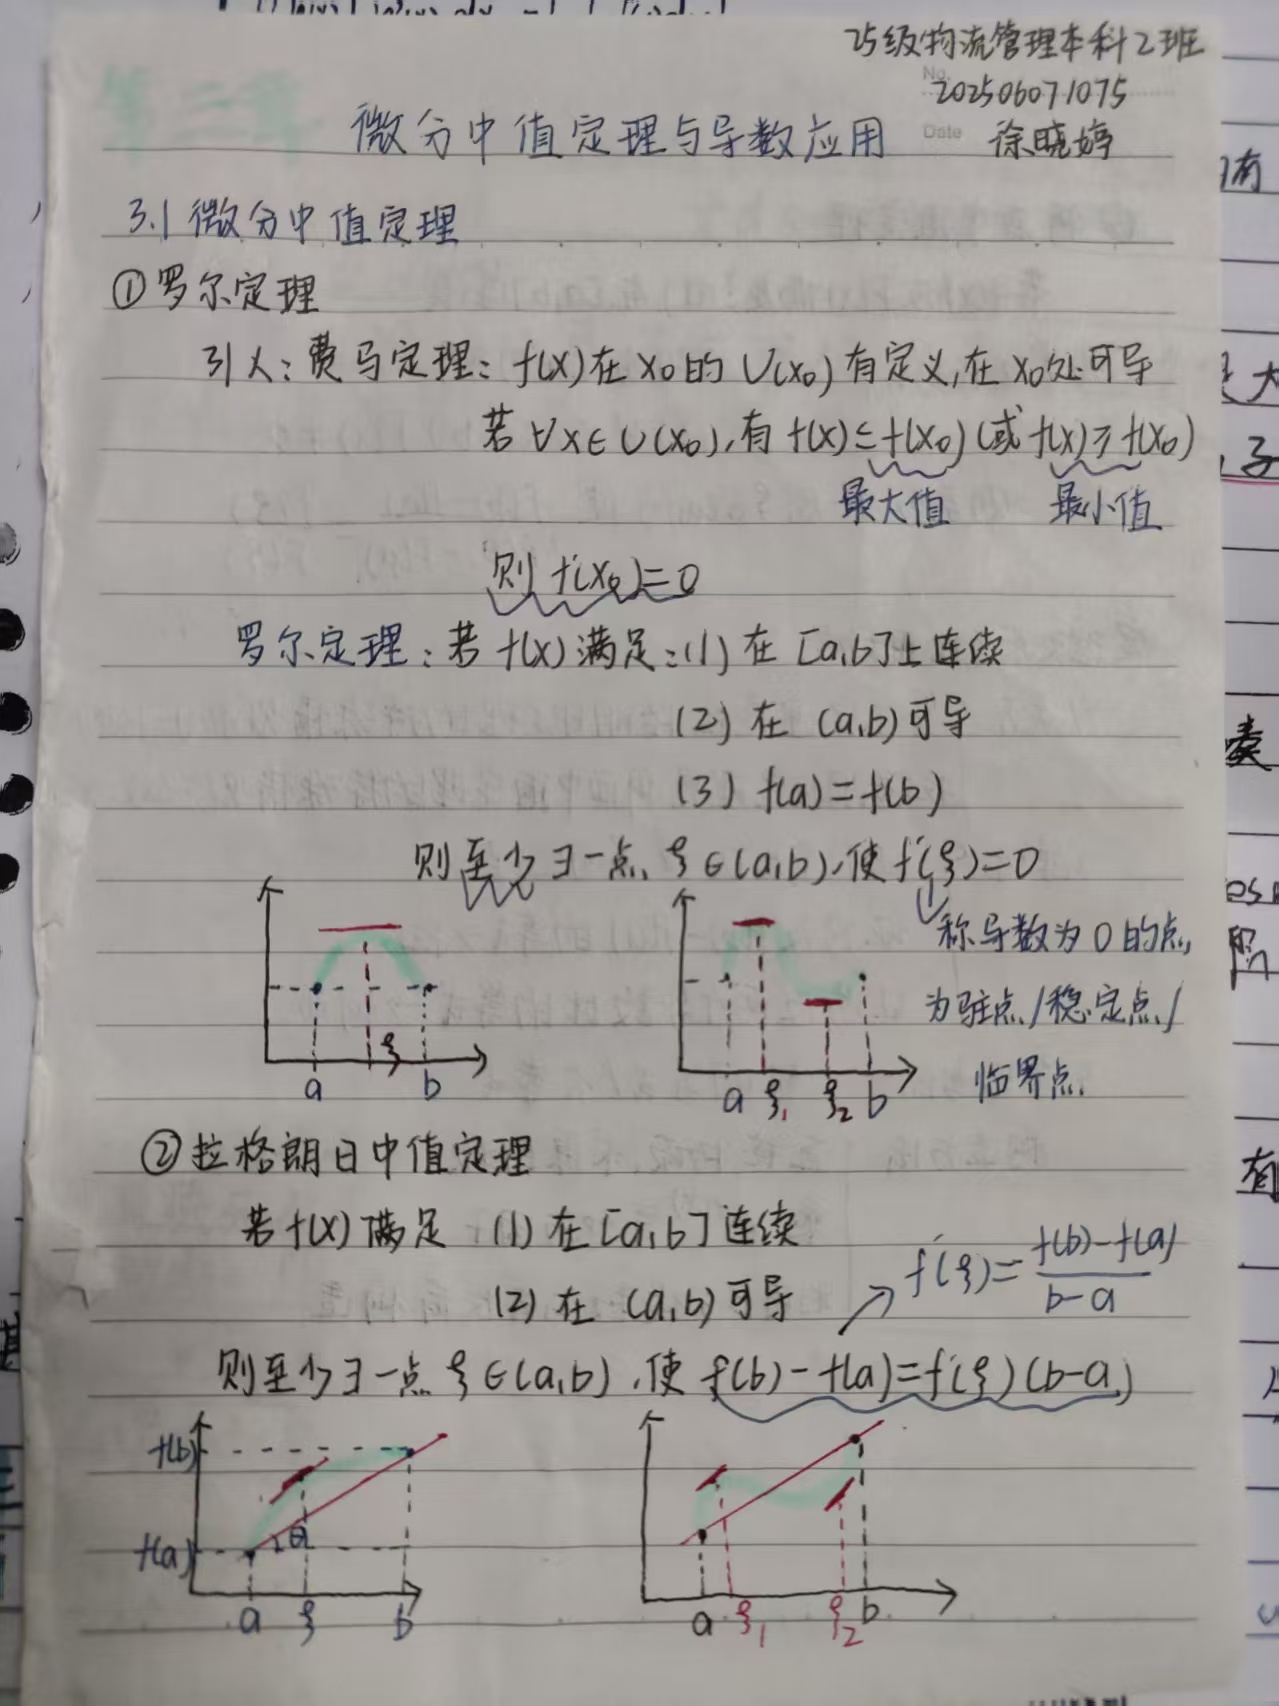 25级物流管理本科2班
No.
202506071075
第三章
微分中值定理与导数应用
Date
徐晓婷
3.1 微分中值定理
①罗尔定理
引入:费马定理:f(x)在x₀的U(x₀)有定义,在x₀处可导
若∀x∈U(x₀),有f(x)≤f(x₀)(或f(x)≥f(x₀))
最大值 最小值
则f'(x₀)=0
罗尔定理:若f(x)满足:(1)在[a,b]上连续
(2)在(a,b)可导
(3)f(a)=f(b)
则至少∃一点ξ∈(a,b),使f'(ξ)=0
称导数为0的点,
为驻点/稳定点/
临界点.
a ξ b
a ξ₁ ξ₂ b
②拉格朗日中值定理
若f(x)满足 (1)在[a,b]连续
(2)在(a,b)可导
f'(ξ)=f(b)-f(a)/b-a
则至少∃一点ξ∈(a,b),使f(b)-f(a)=f'(ξ)(b-a)
f(b)
f(a)
θ
a ξ b
a ξ₁ ξ₂ b